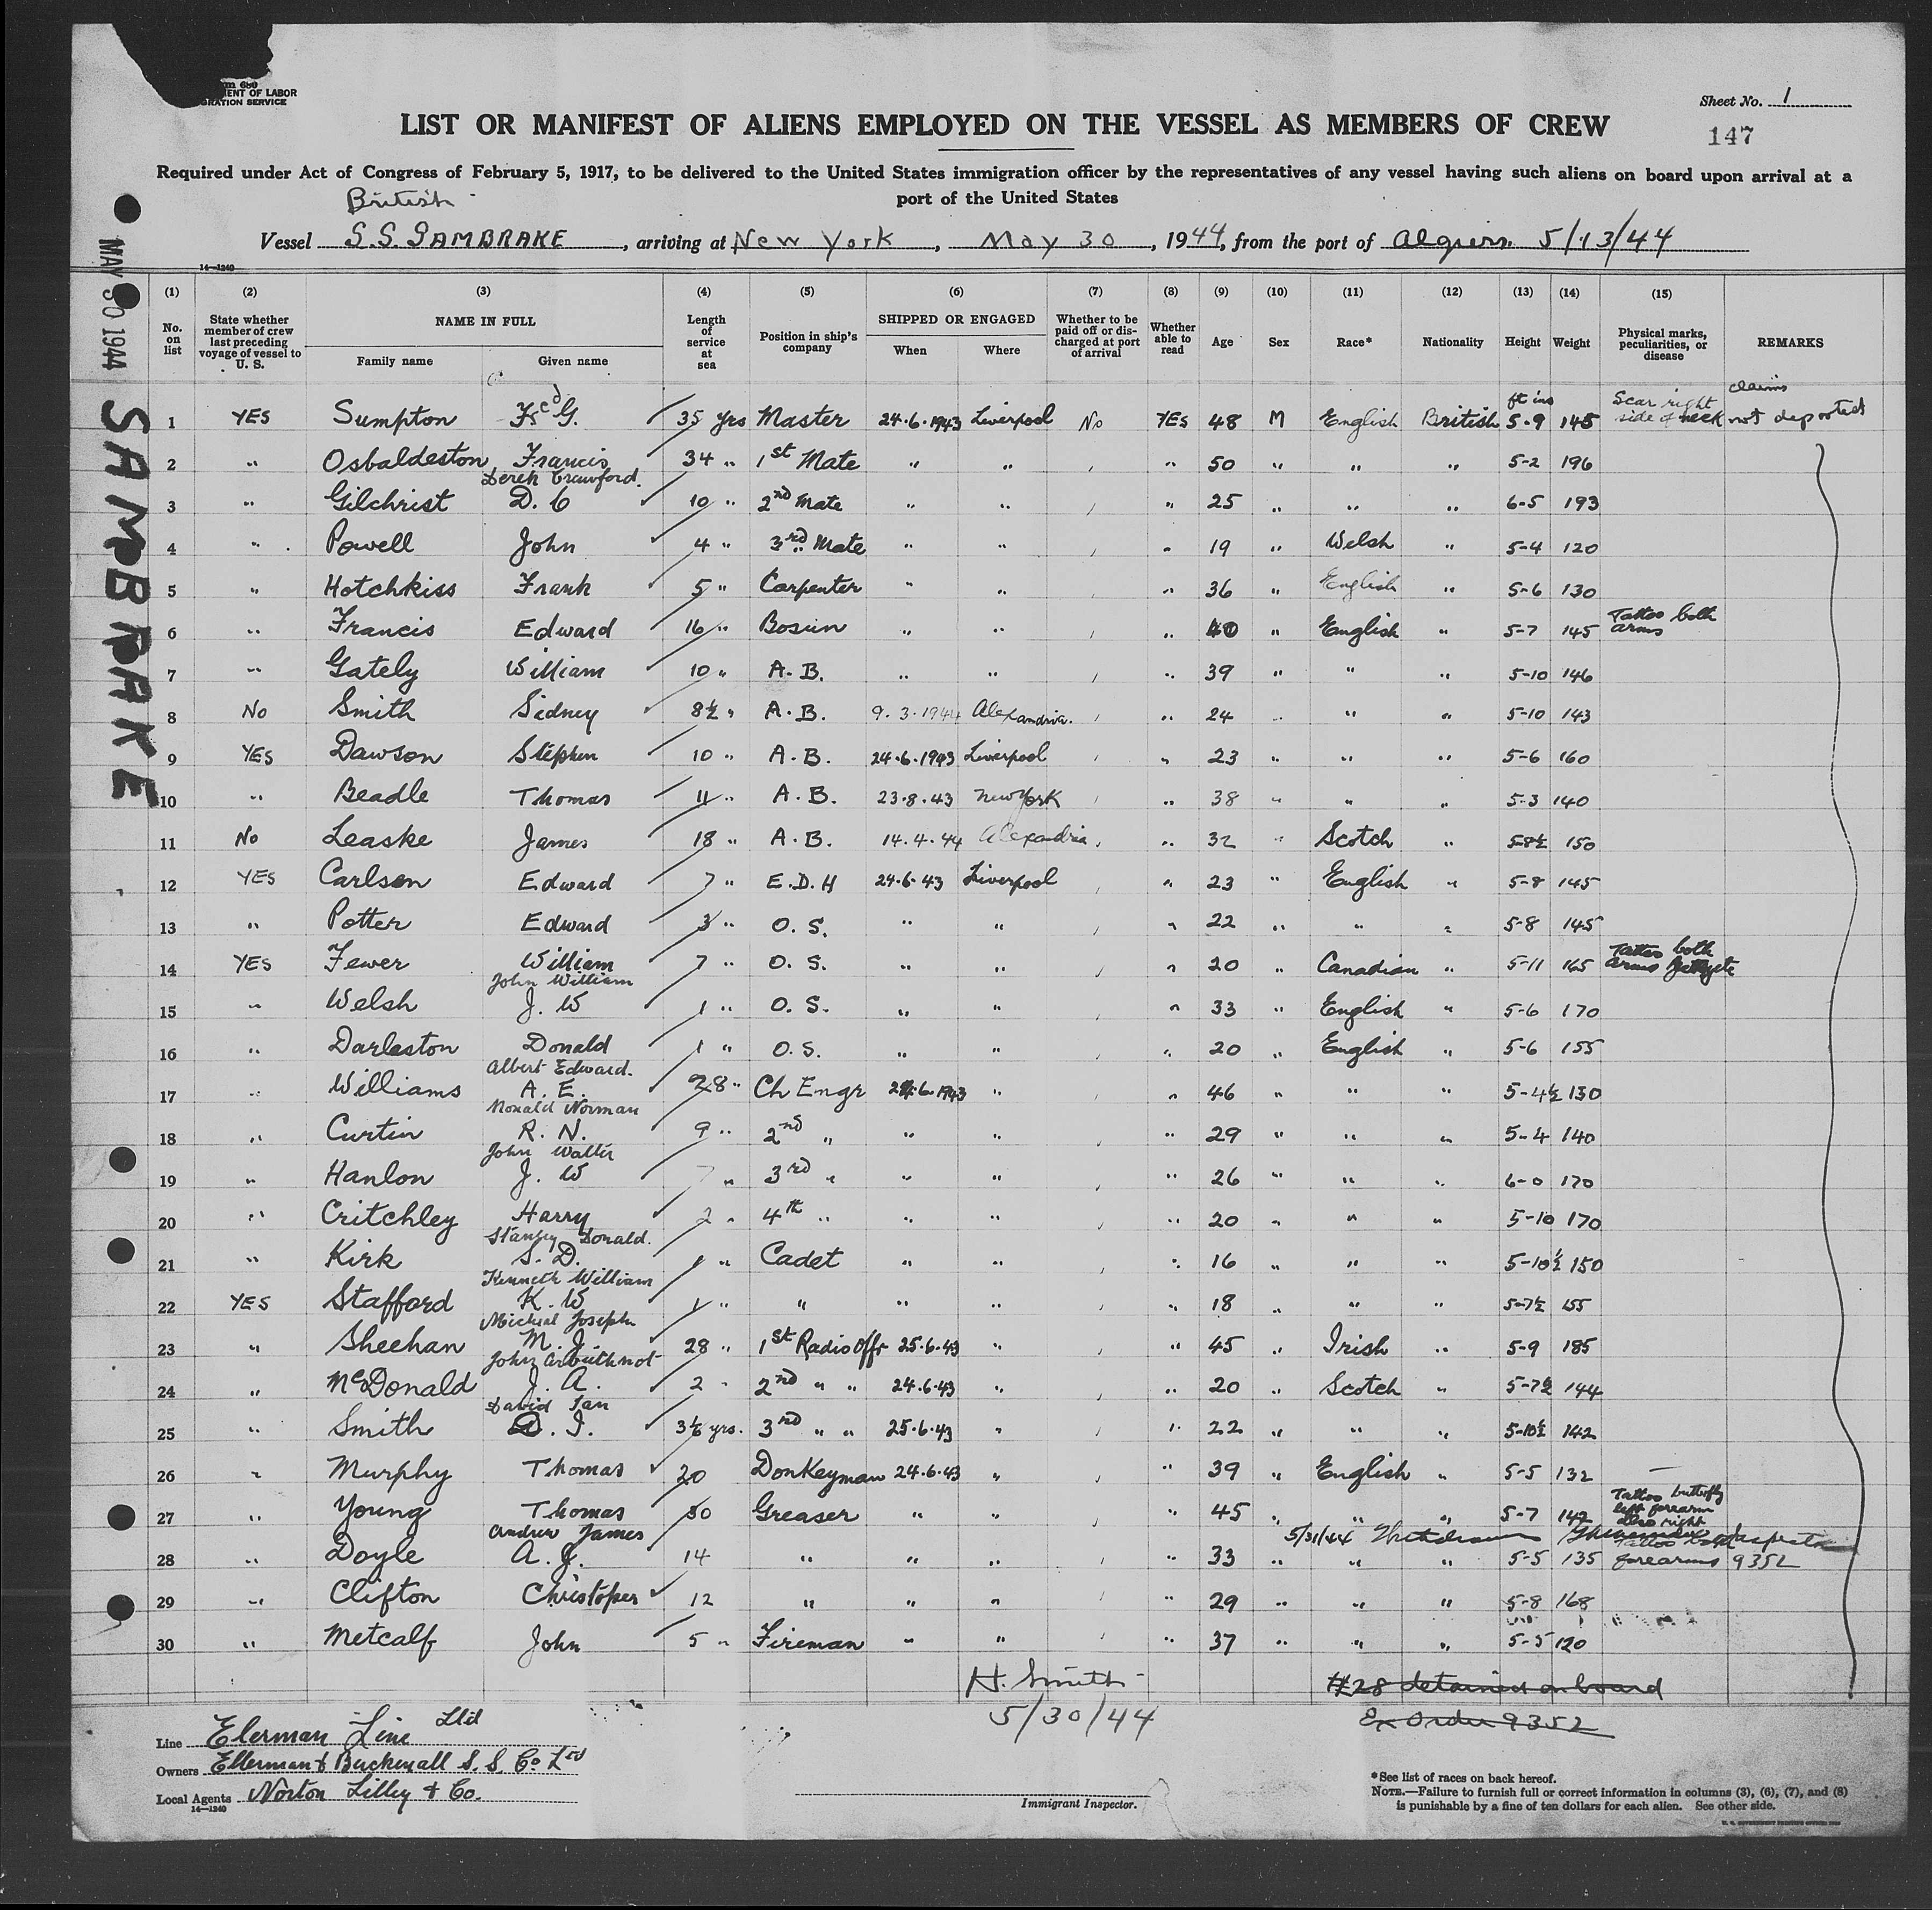 m 680
ENT OF LABOR
GRATION SERVICE
Sheet No. 1
LIST OR MANIFEST OF ALIENS EMPLOYED ON THE VESSEL AS MEMBERS OF CREW
147
Required under Act of Congress of February 5, 1917, to be delivered to the United States immigration officer by the representatives of any vessel having such aliens on board upon arrival at a
port of the United States
British
Vessel S.S. SAMBRAKE, arriving at New York, May 30, 1944, from the port of Algiers. 5/13/44
14—1240
MAY 30 1944
SAMBRAKE
(1) (2) (3) (4) (5) (6) (7) (8) (9) (10) (11) (12) (13) (14) (15)
No. on list
State whether member of crew last preceding voyage of vessel to U. S.
NAME IN FULL
Family name Given name
Length of service at sea
Position in ship's company
SHIPPED OR ENGAGED
When Where
Whether to be paid off or discharged at port of arrival
Whether able to read
Age Sex Race* Nationality Height Weight
Physical marks, peculiarities, or disease
REMARKS
claims
ft ins
1 YES Sumpton G. 35 yrs Master 24.6.1943 Liverpool No YES 48 M English British 5-9 145 Scar right side of neck not deported
2 " Osbaldeston Francis 34 " 1st Mate " " " 50 " " " 5-2 196
Derek Crawford.
3 " Gilchrist D. C 10 " 2nd Mate " " " 25 " " " 6-5 193
4 " Powell John 4 " 3rd Mate " " " 19 " Welsh " 5-4 120
5 " Hotchkiss Frank 5 " Carpenter " " " 36 " English " 5-6 130
6 " Francis Edward 16 " Bosun " " " 40 " English " 5-7 145 Tattoo both arms
7 " Gately William 10 " A.B. " " " 39 " " " 5-10 146
8 No Smith Sidney 8½ " A.B. 9.3.1944 Alexandria. " 24 " " " 5-10 143
9 YES Dawson Stephen 10 " A.B. 24.6.1943 Liverpool " 23 " " " 5-6 160
10 " Beadle Thomas 11 " A.B. 23.8.43 New York " 38 " " " 5-3 140
11 No Leaske James 18 " A.B. 14.4.44 Alexandria " 32 " Scotch " 5-8½ 150
12 YES Carlson Edward 7 " E.D.H 24.6.43 Liverpool " 23 " English " 5-8 145
13 " Potter Edward 3 " O.S. " " " 22 " " " 5-8 145
14 YES Fewer William 7 " O.S. " " " 20 " Canadian " 5-11 165 Tattoo both arms
John William
15 " Welsh J. W 1 " O.S. " " " 33 " English " 5-6 170
16 " Darleston Donald 1 " O.S. " " " 20 " English " 5-6 155
Albert Edward.
17 " Williams A. E. 28 " Ch Engr 24.6.1943 " " 46 " " " 5-4½ 130
Ronald Norman
18 " Curtin R. N. 9 " 2nd " " " " 29 " " " 5-4 140
John Walter
19 " Hanlon J. W 7 " 3rd " " " " 26 " " " 6-0 170
20 " Critchley Harry 2 " 4th " " " " 20 " " " 5-10 170
Stanley Donald.
21 " Kirk S. D. 1 " Cadet " " " 16 " " " 5-10½ 150
Kenneth William
22 YES Stafford K. W 1 " " " " " 18 " " " 5-7½ 155
Micheal Joseph
23 " Sheehan M. J. 28 " 1st Radio Offr 25.6.43 " " 45 " Irish " 5-9 185
John Arbuthnot
24 " McDonald J. A. 2 " 2nd " " 24.6.43 " " 20 " Scotch " 5-7½ 144
David Ian
25 " Smith D. I. yrs. 3rd " " 25.6.43 " " 22 " " " 5-10½ 142
26 " Murphy Thomas 20 Donkeyman 24.6.43 " " 39 " English " 5-5 132 —
27 " Young Thomas 30 Greaser " " " 45 " " " 5-7 142 Tattoo butterfly left forearm also right
Andrew James
5/31/44 Withdrawn Inspector
28 " Doyle A. J. 14 " " " " 33 " " " 5-5 135 Tattoo both forearms 9352
29 " Clifton Christoper 12 " " " " 29 " " " 5-8 168
30 " Metcalf John 5 " Fireman " " " 37 " " " 5-5 120
H. Smith
5/30/44
#28 detained on board
Ex Order 9352
Line Elerman Line Ltd
Owners Ellerman & Bucknall S.S. Co. Ltd
Local Agents Norton Lilley & Co.
14—1240
Immigrant Inspector.
*See list of races on back hereof.
NOTE.—Failure to furnish full or correct information in columns (3), (6), (7), and (8)
is punishable by a fine of ten dollars for each alien. See other side.